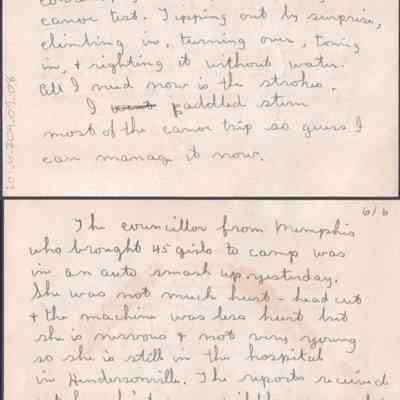 canoe test. Tipping out by surprise,
climbing in, turning over, towing
in, & righting it without water.
All I need now is the strokes.
I paddled stern
most of the canoe trip so guess I
can manage it now.
6/6
The councillor from Memphis
who brought 45 girls to camp was
in an auto smash up yesterday.
She was not much hurt - head cut
& the machine was less hurt but
she is nervous & not very young
so she is still in the hospital
in Hendersonville. The reports received